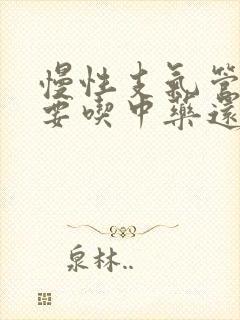 慢性支氣管
要喫中藥還
泉林..